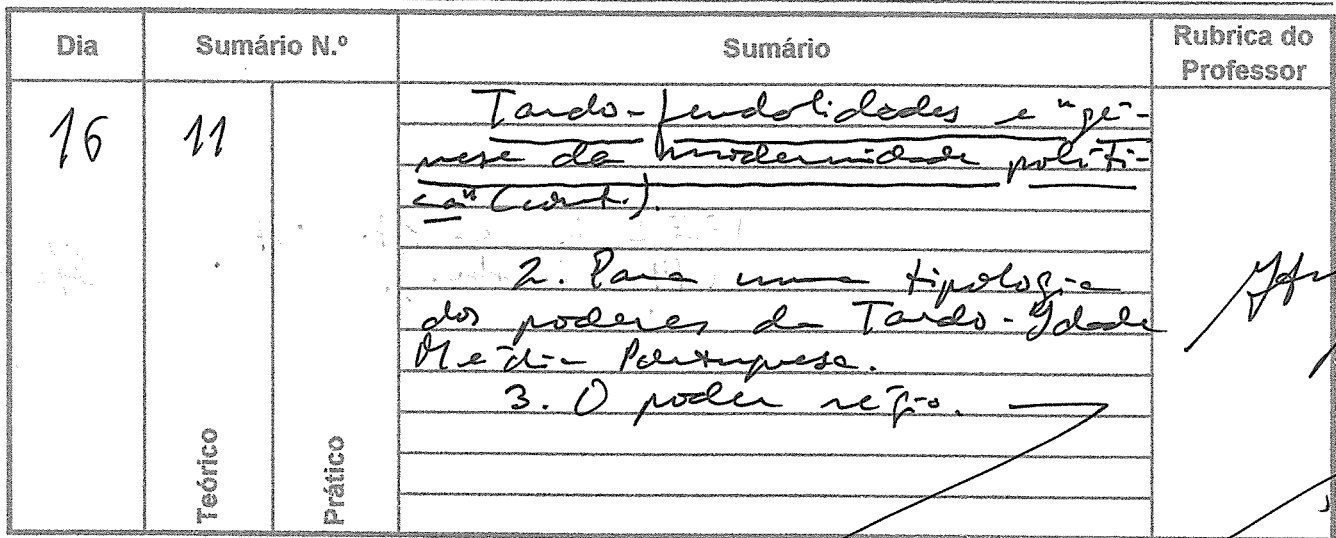 Dia
Sumário N.º
Sumário
Rubrica do
Professor
16
11
Tardo-feudalidades e "gé-
nese da modernidade políti-
ca" (cont.).
2. Para uma tipologia
dos poderes da Tardo-Idade
Média Portuguesa.
3. O poder régio.
Teórico
Prático